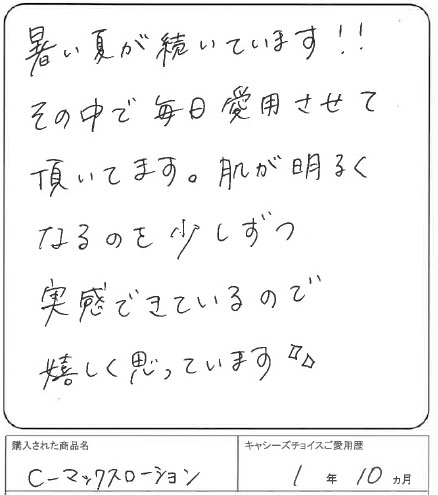 暑い夏が続いています!!
その中で毎日愛用させて
頂いてます。肌が明るく
なるのを少しずつ
実感できているので
嬉しく思っています♪♪
購入された商品名
C-マックスローション
キャシーズチョイスご愛用歴
1年10ヵ月